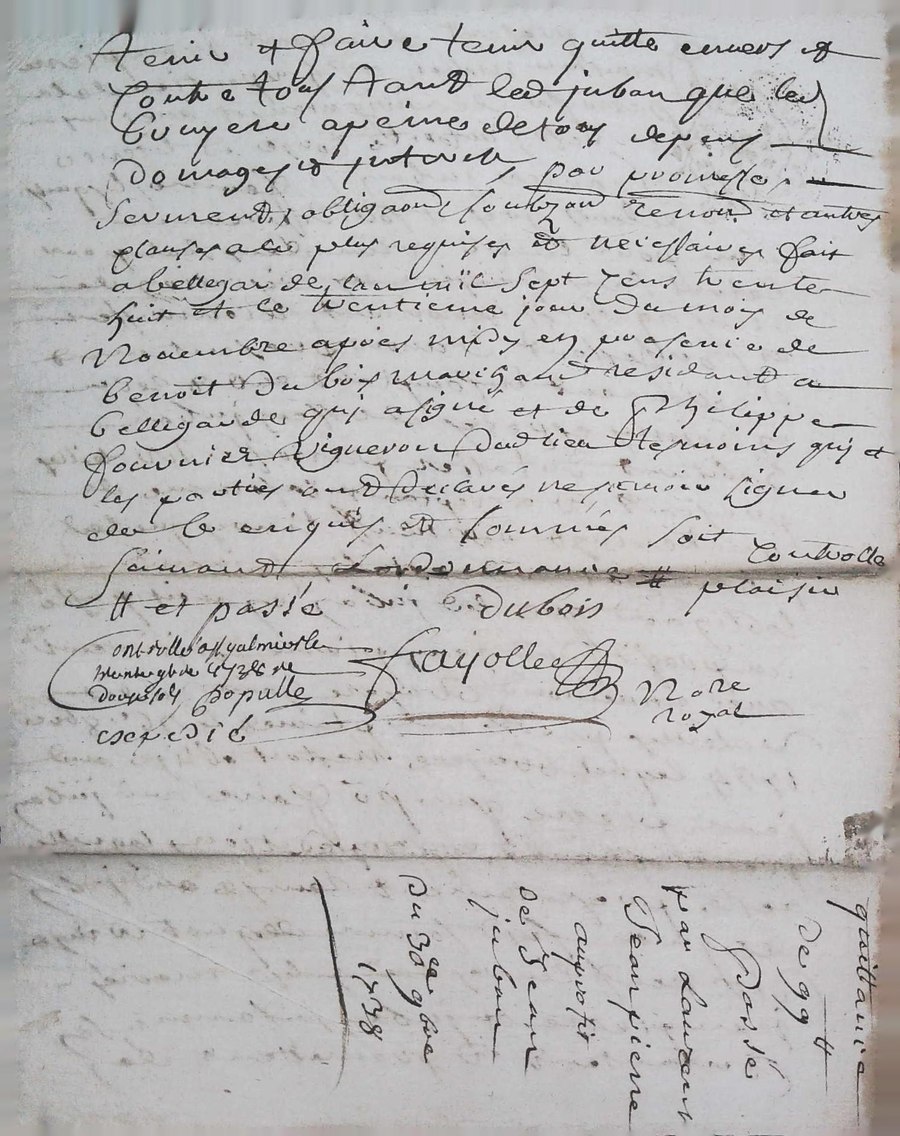 tenir et faire tenir quitte envers et
contre tous tant led juban que led
bruyere a peine de tous depens
domages et interests par promesse
serment obligaon soubzon renon et autres
clauses a ce plus requises et necessaires fait
a bellegarde lan mil sept cens trente
huit et le trentieme jour du mois de
Novembre apres midy en presence de
benoit dubois marchand residant a
bellegarde qui a signé et de philippe
fournier vigneron dud lieu temoins qui et
les parties ont declarés ne sçavoir signer
de ce enquis et sommés soit controllé
suivant lordonnance # plaisir
# et passé Dubois
controllé a St galmier le
trente 9bre 1738 re
douze sols populle
Fayolle
No.re
royal
expedié
quittance
de 99 #
passé
par Laurent
Jean pierre
au profit
de Jean
juban
du 30e 9bre
1738